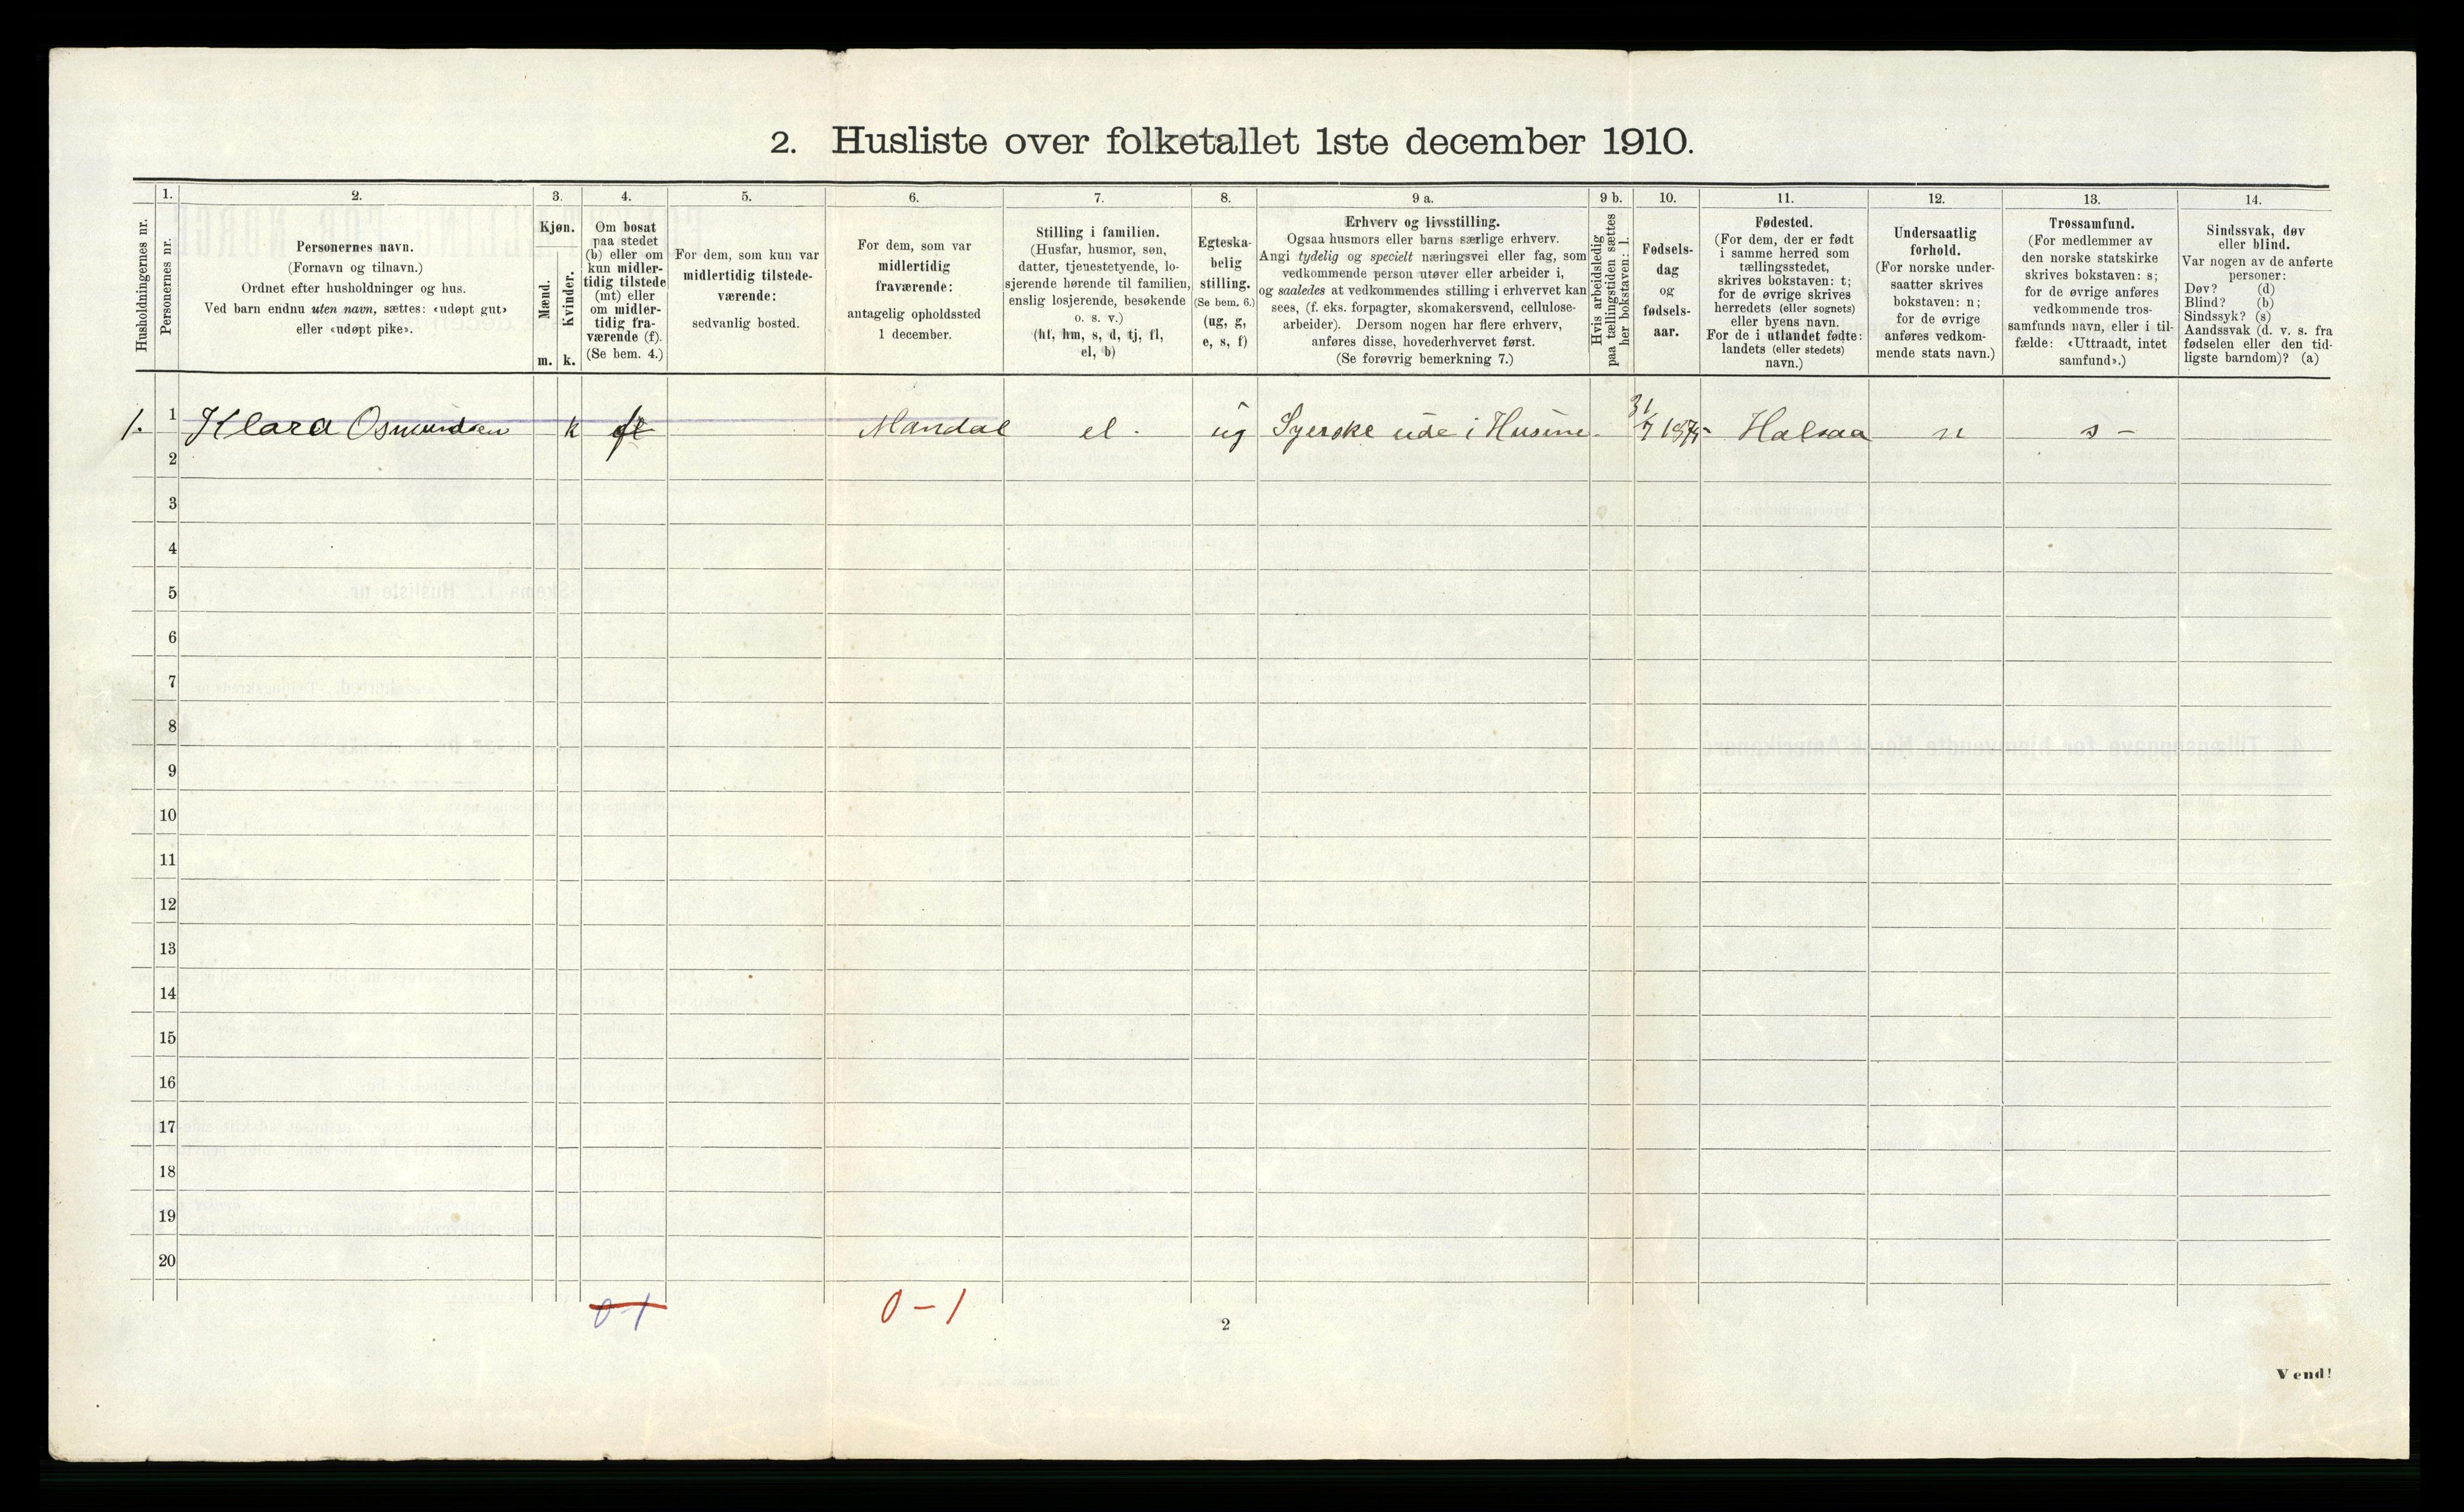 2. Husliste over folketallet 1ste december 1910.
Husholdningernes nr.
1.
Personernes nr.
2.
Personernes navn.
(Fornavn og tilnavn.)
Ordnet efter husholdninger og hus.
Ved barn endnu uten navn, sættes: «udøpt gut»
eller «udøpt pike».
3.
Kjøn.
Mænd.
m.
Kvinder.
k.
4.
Om bosat
paa stedet
(b) eller om
kun midler-
tidig tilstede
(mt) eller
om midler-
tidig fra-
værende (f).
(Se bem. 4.)
5.
For dem, som kun var
midlertidig tilstede-
værende:
sedvanlig bosted.
6.
For dem, som var
midlertidig
fraværende:
antagelig opholdssted
1 december.
7.
Stilling i familien.
(Husfar, husmor, søn,
datter, tjenestetyende, lo-
sjerende hørende til familien,
enslig losjerende, besøkende
o. s. v.)
(hf, hm, s, d, tj, fl,
el, b)
8.
Egteska-
belig
stilling.
(Se bem. 6.)
(ug, g,
e, s, f)
9 a.
Erhverv og livsstilling.
Ogsaa husmors eller barns særlige erhverv.
Angi tydelig og specielt næringsvei eller fag, som
vedkommende person utøver eller arbeider i,
og saaledes at vedkommendes stilling i erhvervet kan
sees, (f. eks. forpagter, skomakersvend, cellulose-
arbeider). Dersom nogen har flere erhverv,
anføres disse, hovederhvervet først.
(Se forøvrig bemerkning 7.)
9 b.
Hvis arbeidsledig
paa tællingstiden sættes
her bokstaven: l.
10.
Fødsels-
dag
og
fødsels-
aar.
11.
Fødested.
(For dem, der er født
i samme herred som
tællingsstedet,
skrives bokstaven: t;
for de øvrige skrives
herredets (eller sognets)
eller byens navn.
For de i utlandet fødte:
landets (eller stedets)
navn.)
12.
Undersaatlig
forhold.
(For norske under-
saatter skrives
bokstaven: n;
for de øvrige
anføres vedkom-
mende stats navn.)
13.
Trossamfund.
(For medlemmer av
den norske statskirke
skrives bokstaven: s;
for de øvrige anføres
vedkommende tros-
samfunds navn, eller i til-
fælde: «Uttraadt, intet
samfund».)
14.
Sindssvak, døv
eller blind.
Var nogen av de anførte
personer:
Døv? (d)
Blind? (b)
Sindssyk? (s)
Aandssvak (d. v. s. fra
fødselen eller den tid-
ligste barndom)? (a)
1. 1 Klara Osmundsen k Mandal el. ug Syerske ude i Husene. 31/7 Halsaa n s -
2
3
4
5
6
7
8
9
10
11
12
13
14
15
16
17
18
19
20
0-1
0 - 1
2
Vend!